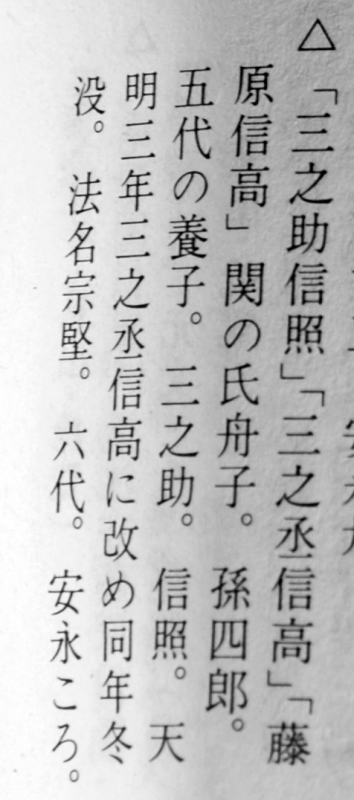 △「三之助信照」「三之丞信高」「藤
原信高」関の氏舟子。孫四郎。
五代の養子。三之助。信照。天
明三年三之丞信高に改め同年冬
没。法名宗堅。六代。安永ころ。